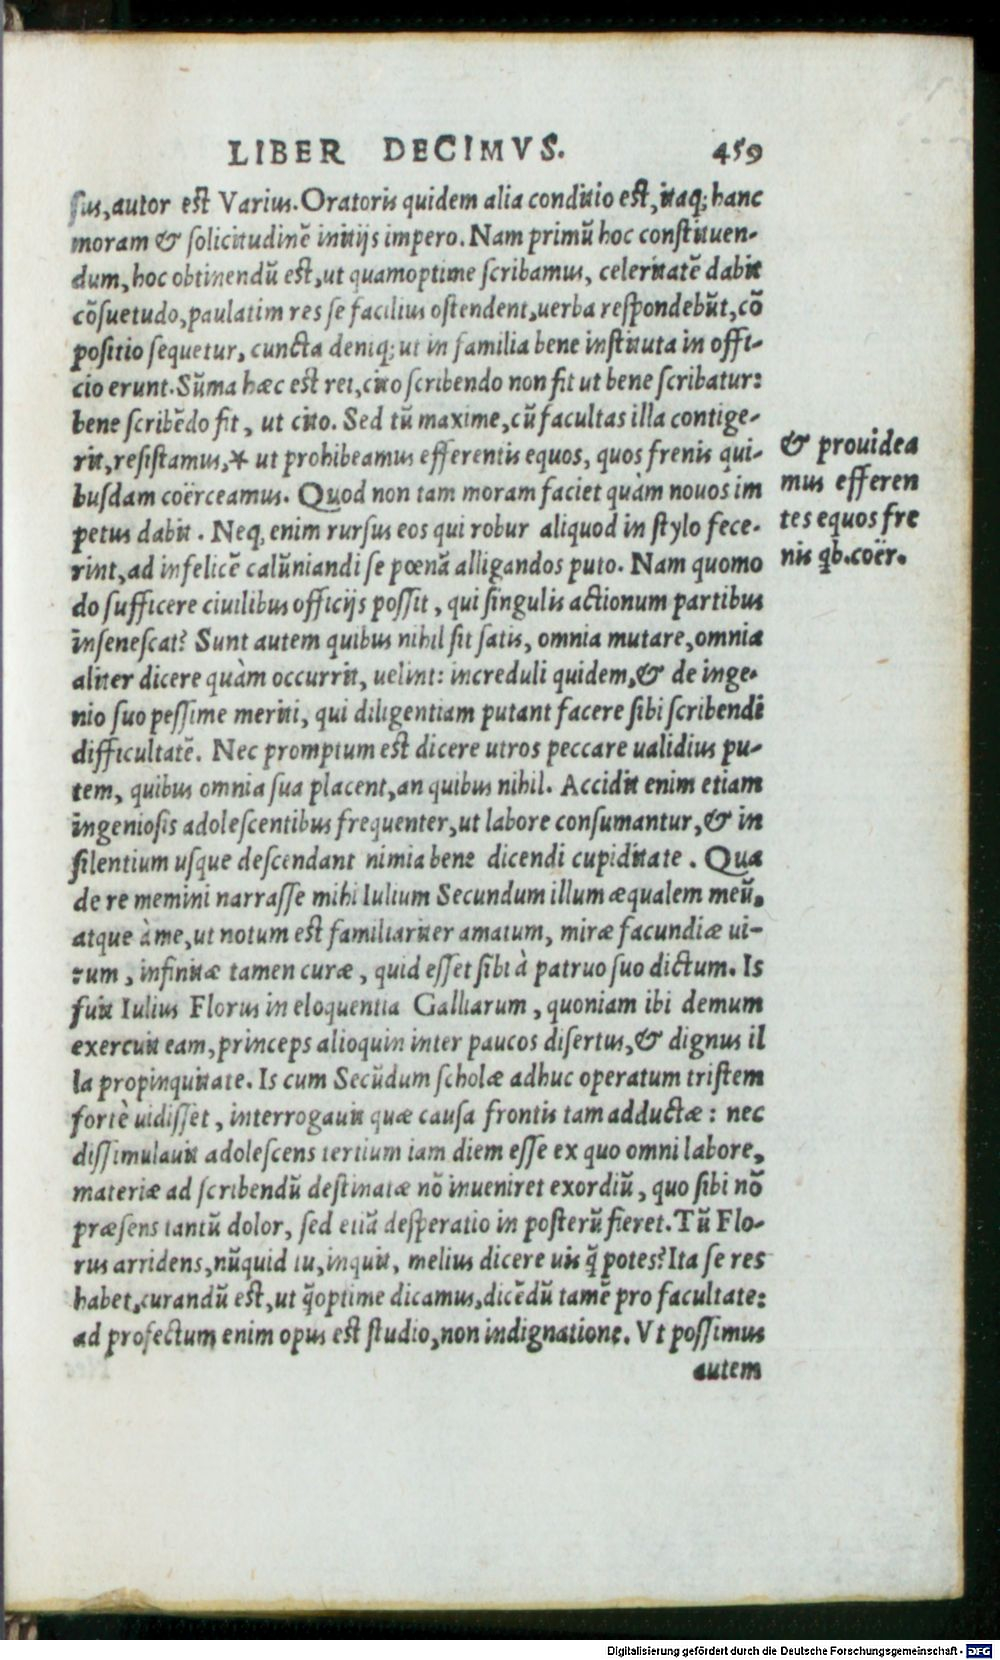 LIBER DECIMVS. 459
ſus, autor eſt Varius. Oratoris quidem alia conditio eſt, itaq; hanc
moram & ſolicitudinē initijs impero. Nam primū hoc conſtituen-
dum, hoc obtinendū eſt, ut quamoptime ſcribamus, celeritatē dabit
cōſuetudo, paulatim res ſe facilius oſtendent, uerba reſpondebūt, cō
poſitio ſequetur, cuncta deniq; ut in familia bene inſtituta in offi-
cio erunt. Sūma hæc eſt rei, cito ſcribendo non fit ut bene ſcribatur:
bene ſcribēdo fit, ut cito. Sed tū maxime, cū facultas illa contige-
rit, reſiſtamus, * ut prohibeamus efferentis equos, quos frenis qui-
buſdam coërceamus. Quod non tam moram faciet quàm nouos im
petus dabit. Neq; enim rurſus eos qui robur aliquod in ſtylo fece-
rint, ad infelicē calūniandi ſe pœnā alligandos puto. Nam quomo
do ſufficere ciuilibus officijs poſſit, qui ſingulis actionum partibus
inſeneſcat? Sunt autem quibus nihil ſit ſatis, omnia mutare, omnia
aliter dicere quàm occurrit, uelint: increduli quidem, & de inge-
nio ſuo peſſime meriti, qui diligentiam putant facere ſibi ſcribendi
difficultatē. Nec promptum eſt dicere utros peccare ualidius pu-
tem, quibus omnia ſua placent, an quibus nihil. Accidit enim etiam
ingenioſis adoleſcentibus frequenter, ut labore conſumantur, & in
ſilentium uſque deſcendant nimia bene dicendi cupiditate. Qua
de re memini narraſſe mihi Iulium Secundum illum æqualem meū,
atque à me, ut notum eſt familiariter amatum, miræ facundiæ ui-
rum, infinitæ tamen curæ, quid eſſet ſibi à patruo ſuo dictum. Is
fuit Iulius Florus in eloquentia Galliarum, quoniam ibi demum
exercuit eam, princeps alioquin inter paucos diſertus, & dignus il
la propinquitate. Is cum Secūdum ſcholæ adhuc operatum triſtem
fortè uidiſſet, interrogauit quæ cauſa frontis tam adductæ: nec
diſſimulauit adoleſcens tertium iam diem eſſe ex quo omni labore,
materiæ ad ſcribendū deſtinatæ nō inueniret exordiū, quo ſibi nō
præſens tantū dolor, ſed etiā deſperatio in poſterū fieret. Tū Flo-
rus arridens, nūquid tu, inquit, melius dicere uis q̄ potes? Ita ſe res
habet, curandū eſt, ut q̄optime dicamus, dicēdū tamē pro facultate:
ad profectum enim opus eſt ſtudio, non indignatione. Vt poſſimus
autem
& prouidea
mus efferen
tes equos fre
nis qb. coër.
Digitalisierung gefördert durch die Deutsche Forschungsgemeinschaft - DFG